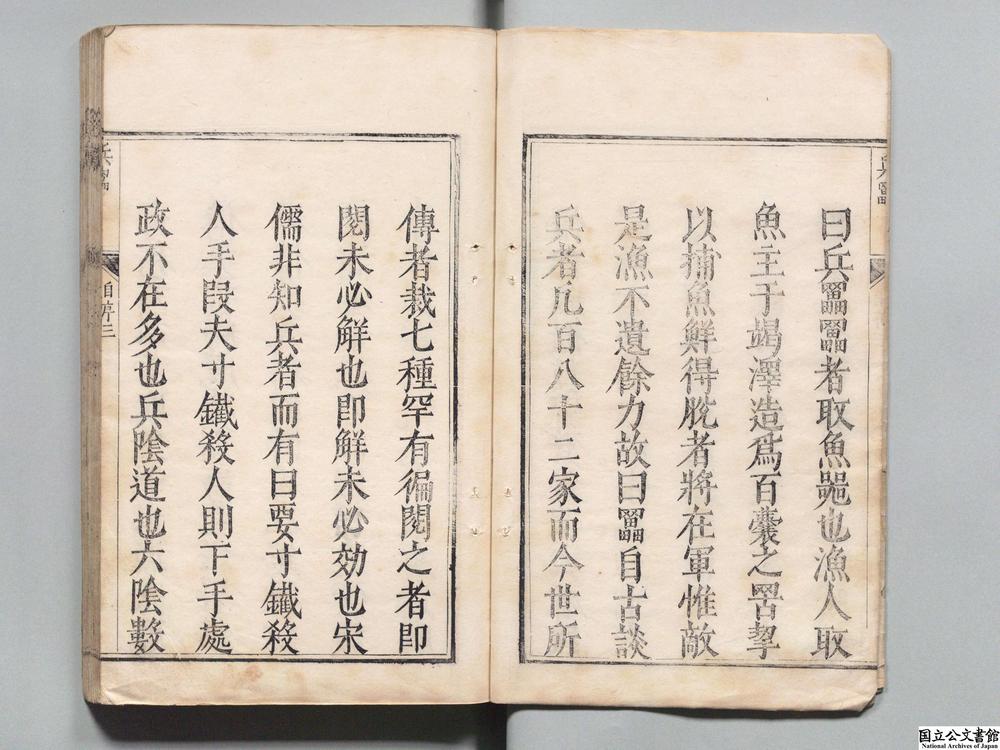 曰兵罶罶者取魚噐也漁人取
魚主于竭澤造為百囊之罟挈
以捕魚鮮得脫者將在軍惟敵
是漁不遺餘力故曰罶自古談
兵者凡百八十二家而今世所
傳者裁七種罕有徧閱之者即
閱未必解也即解未必効也宋
儒非知兵者而有曰要寸鐵殺
人手段夫寸鐵殺人則下手處
政不在多也兵陰道也六陰數
兵罶
自序三
国立公文書館
National Archives of Japan